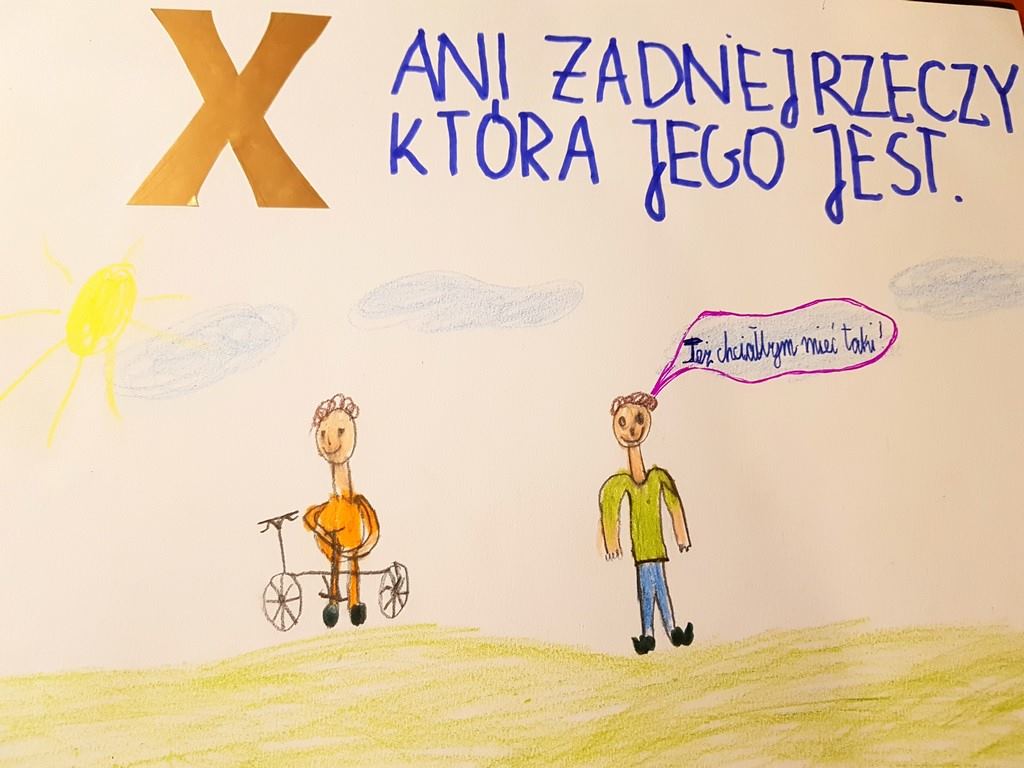 X
ANI ŻADNEJ RZECZY
KTÓRA JEGO JEST.
Też chciałbym mieć taki!